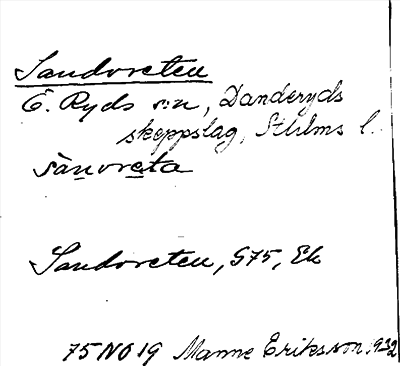 Sandvreten
Ö. Ryds sn, Danderyds
skeppslag, Sthlms l.
sànvreta
Sandvreten, G75, Ek
75 NO 19 Manne Eriksson 1932